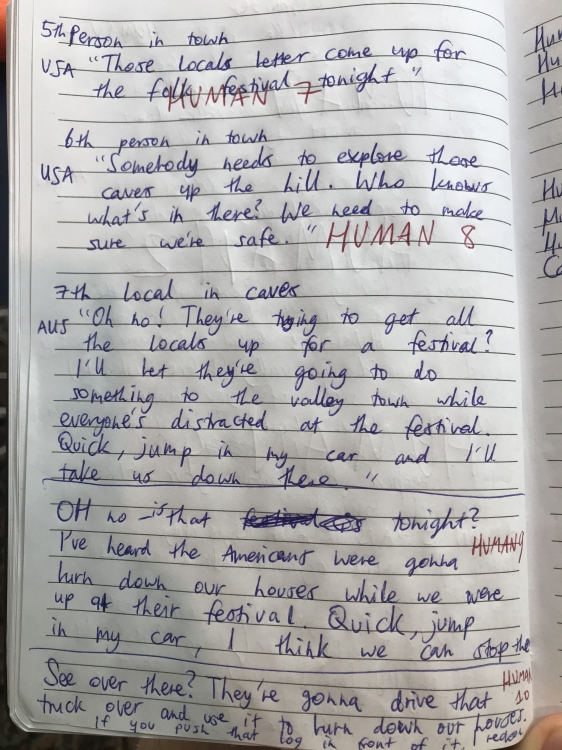 5th person in town
USA "Those locals better come up for
the folk festival tonight"
HUMAN 7
6th person in town
USA "Somebody needs to explore those
caves up the hill. Who knows
what's in there? We need to make
sure we're safe." HUMAN 8
7th local in caves
AUS "Oh no! They're trying to get all
the locals up for a festival?
I'll bet they're going to do
something to the valley town while
everyone's distracted at the festival.
Quick, jump in my car and I'll
take us down there."
OH no is that tonight?
I've heard the Americans were gonna HUMAN 9
burn down our houses while we were
up at their festival. Quick, jump
in my car, I think we can stop the
See over there? They're gonna drive that HUMAN 10
truck over and use it to burn down our houses.
If you push that log in front of it,
Hum
Hu
H